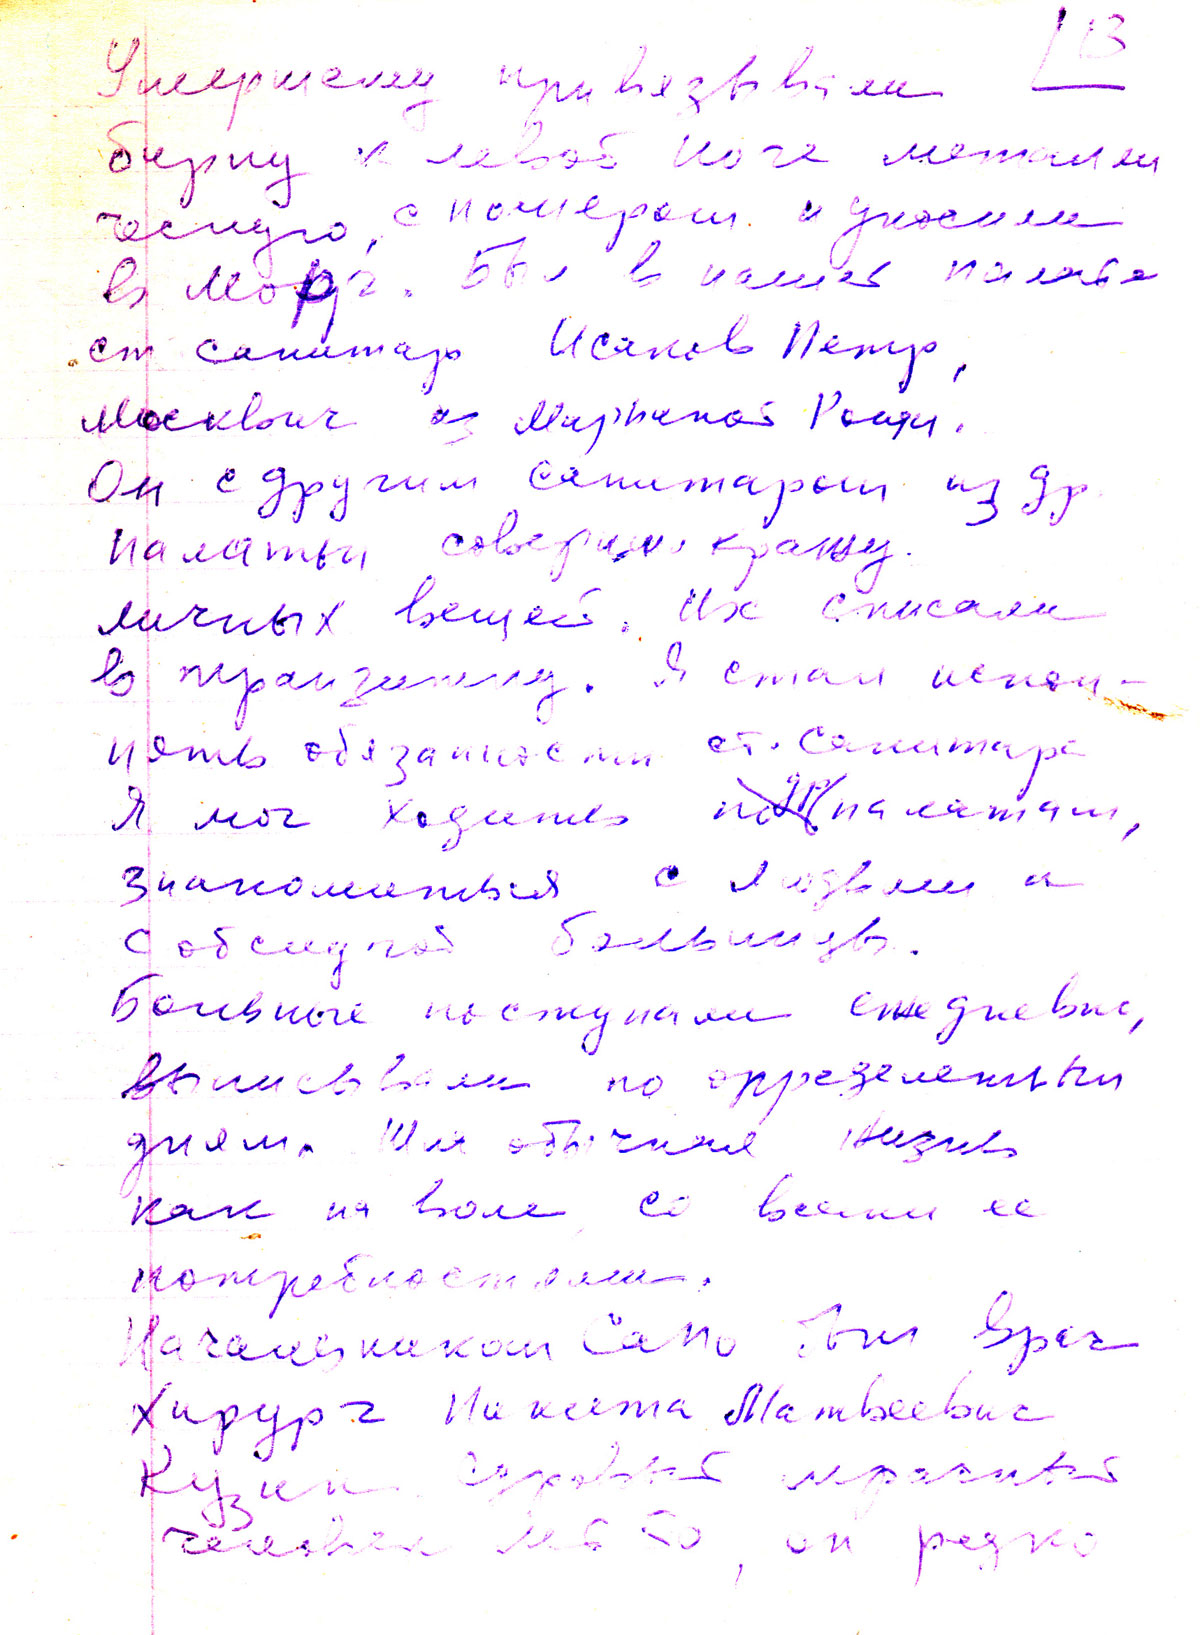 13
Умершему привязывали
бирку к левой ноге металли
ческую, с номером и уносили
в морг. Был в нашей палате
ст санитар Исаков Петр,
москвич из Марьиной Рощи.
Он с другим санитаром из др
палаты совершил кражу
личных вещей. Их списали
в транзитку. Я стал испол-
нять обязанности ст. санитара
Я мог ходить по др палатам,
знакомиться с людьми и
с обслугой больницы.
Больные поступали ежедневно,
выписывали по определенным
дням. Шла обычная жизнь
как на воле со всеми ее
потребностями.
Начальником Сано был врач
хирург Никита Матвеевич
Кузин суровый мрачный
человек лет 50, он редко